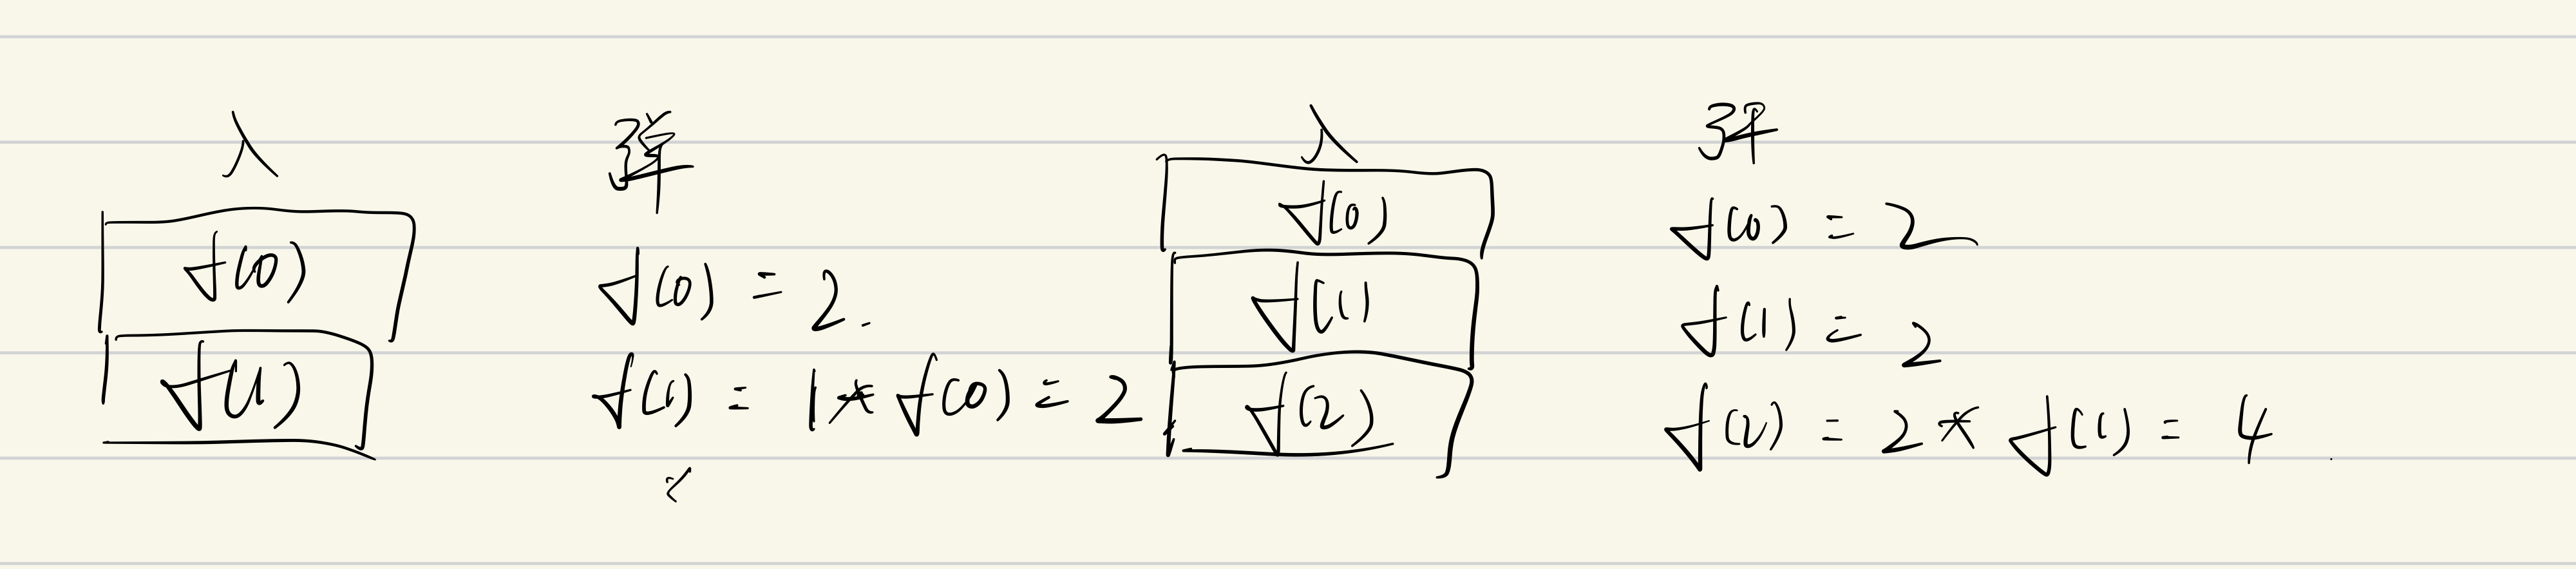 入
f(0)
f(1)
弹
f(0) = 2.
f(1) = 1 * f(0) = 2
入
f(0)
f(1)
f(2)
弹
f(0) = 2
f(1) = 2
f(2) = 2 * f(1) = 4